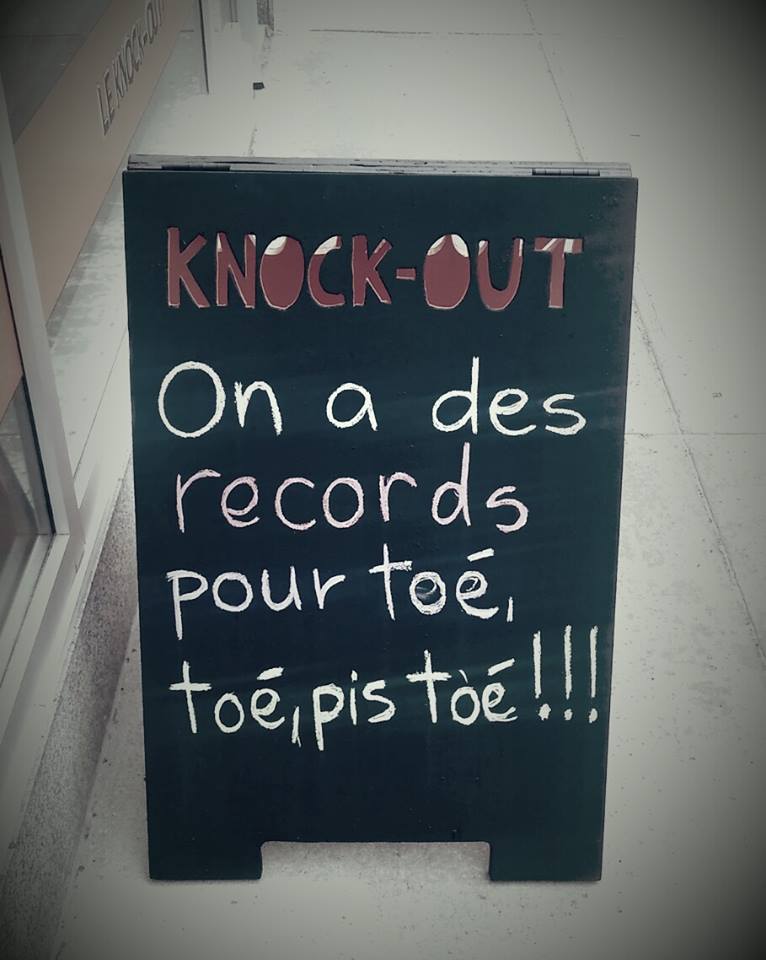 LE KNOCK-OUT!
KNOCK-OUT
On a des
records
pour toé,
toé, pis tòé!!!